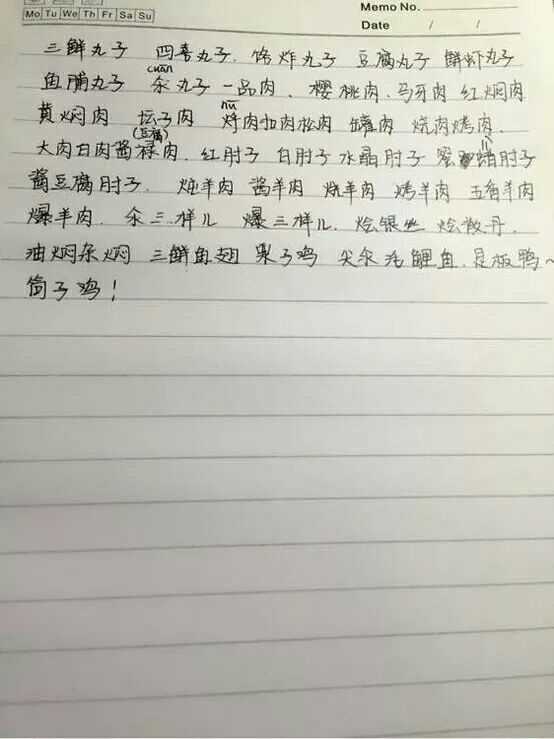 Memo No.
Mo Tu We Th Fr Sa Su
Date / /
三鲜丸子 四喜丸子. 饹炸丸子 豆腐丸子 鲜虾丸子
cuān
鱼脯丸子 汆丸子 一品肉. 樱桃肉. 马牙肉 红焖肉
黄焖肉 坛子肉 烀肉扣肉松肉 罐肉 烧肉烤肉.
(豆腐)
大肉白肉酱禄肉. 红肘子 白肘子 水晶肘子 蜜蜡肘子
酱豆腐肘子. 炖羊肉 酱羊肉 烧羊肉 烤羊肉 五香羊肉
爆羊肉. 汆三样儿 爆三样儿. 烩银丝 烩散丹.
油焖杂焖 三鲜鱼翅 栗子鸡 尖汆活鲤鱼. 是板鸭~
筒子鸡!